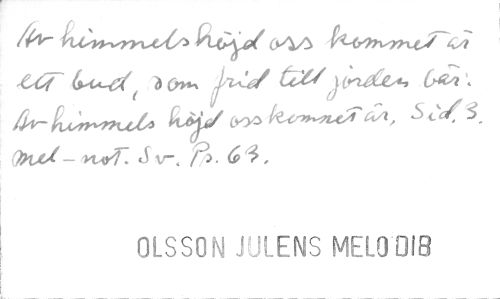 Av himmelshöjd oss kommet är
ett bud, som frid till jorden bär:
Av himmels höjd oss kommet är. Sid. 3.
mel-not. Sv. Ps. 63.
OLSSON JULENS MELODIB